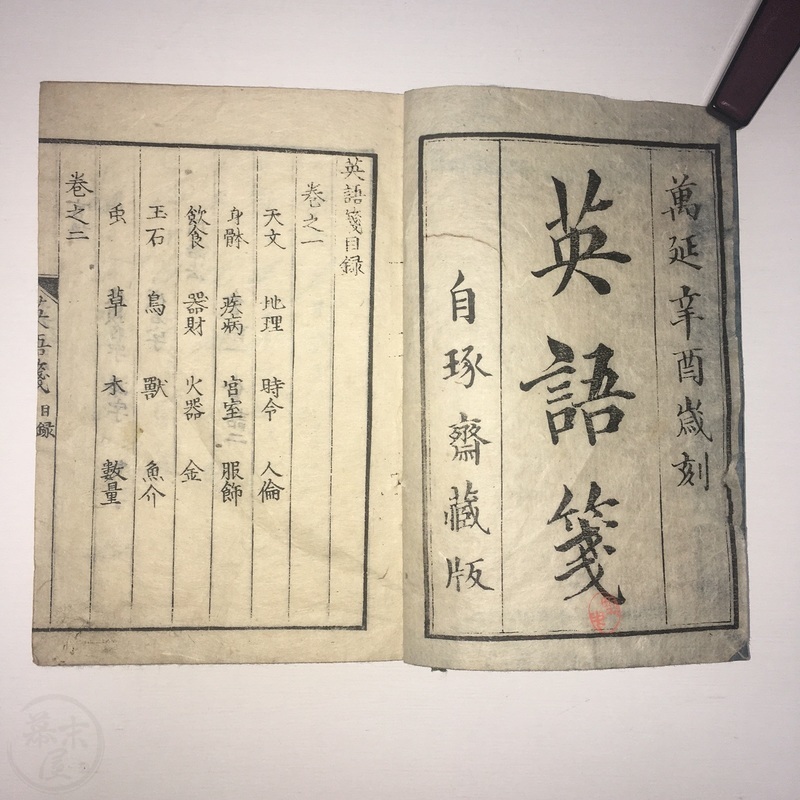 萬延辛酉歲刻
英語箋
自琢齋藏版
英語箋目録
卷之一
天文 地理 時令 人倫
身體 疾病 宮室 服飾
飲食 器財 火器 金
玉石 鳥 獸 魚介
虫 草 木 數量
卷之二
英語箋 目録
幕末屋